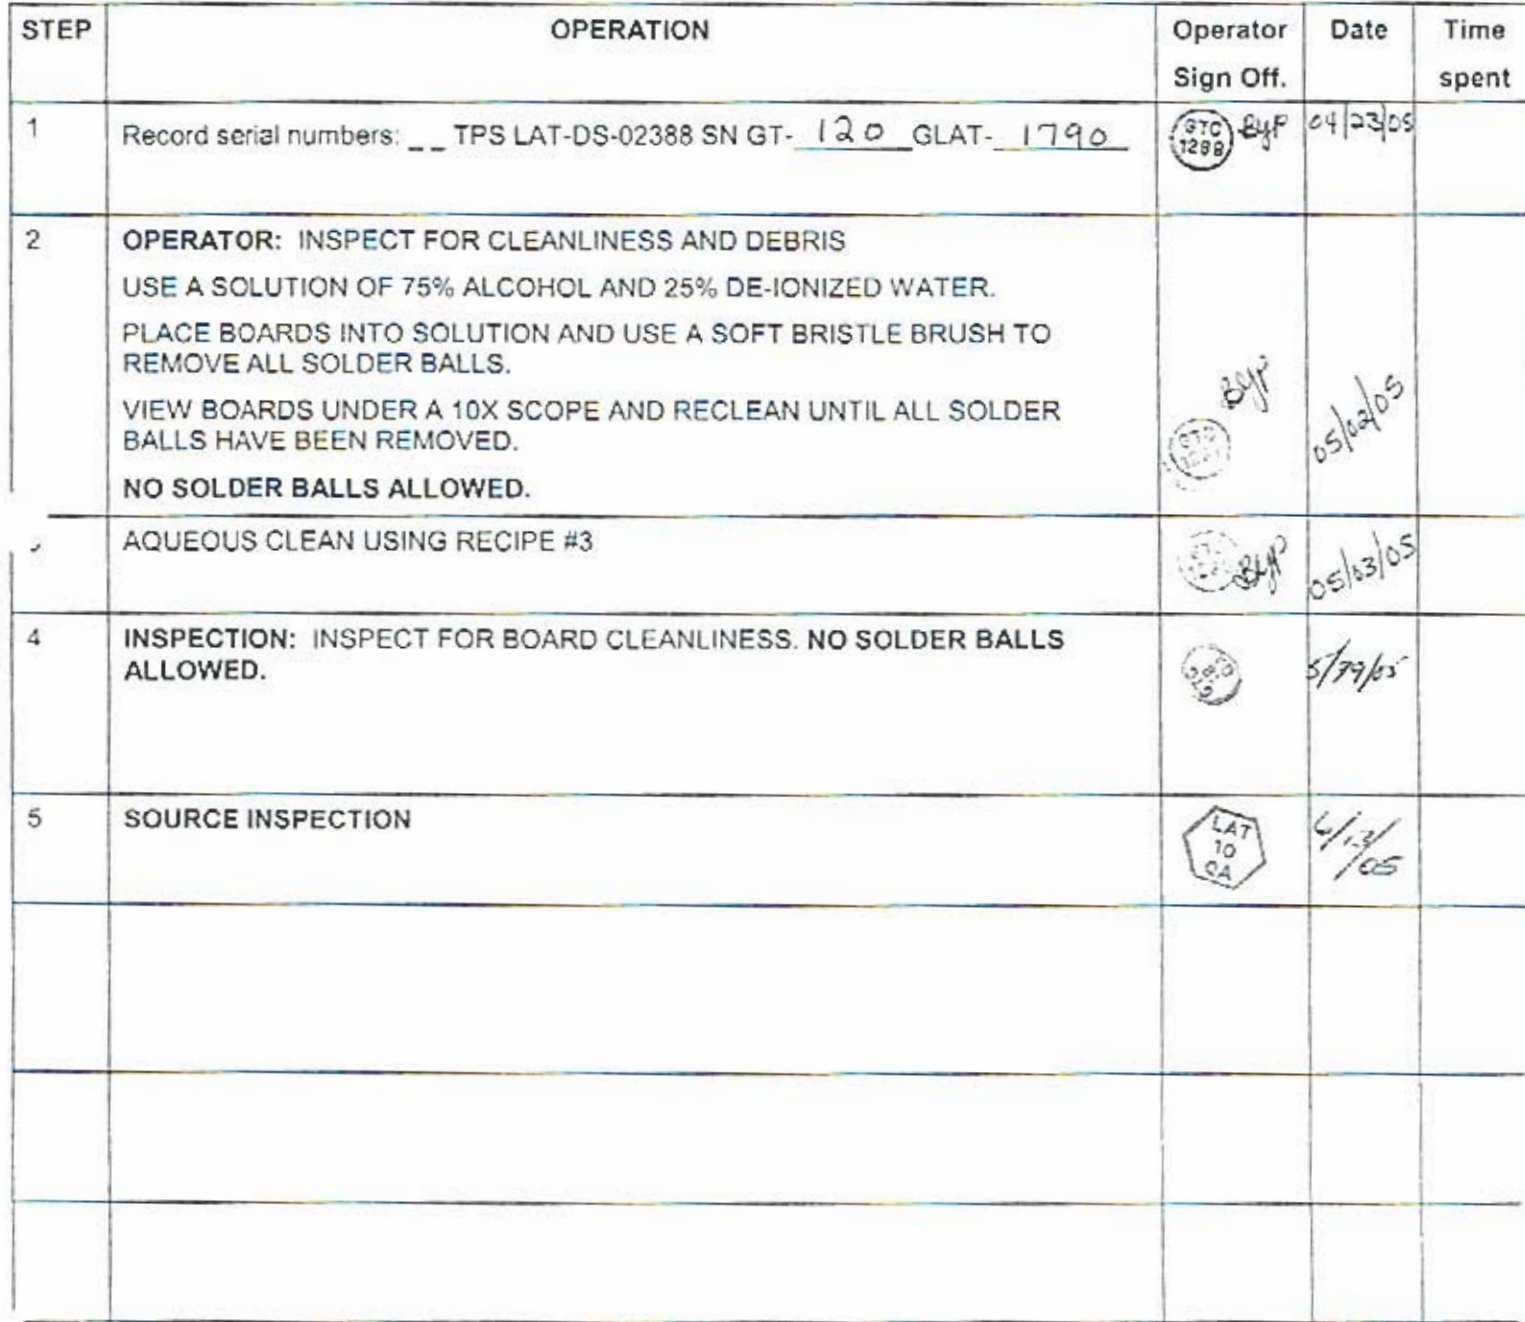 STEP OPERATION Operator Sign Off. Date Time spent
1 Record serial numbers: _ _ TPS LAT-DS-02388 SN GT- 120 GLAT- 1790 GTC 1288 04/23/05
2 OPERATOR: INSPECT FOR CLEANLINESS AND DEBRIS
USE A SOLUTION OF 75% ALCOHOL AND 25% DE-IONIZED WATER.
PLACE BOARDS INTO SOLUTION AND USE A SOFT BRISTLE BRUSH TO
REMOVE ALL SOLDER BALLS.
VIEW BOARDS UNDER A 10X SCOPE AND RECLEAN UNTIL ALL SOLDER
BALLS HAVE BEEN REMOVED.
NO SOLDER BALLS ALLOWED.
05/02/05
AQUEOUS CLEAN USING RECIPE #3 05/03/05
4 INSPECTION: INSPECT FOR BOARD CLEANLINESS. NO SOLDER BALLS
ALLOWED.
5 SOURCE INSPECTION LAT 10 QA